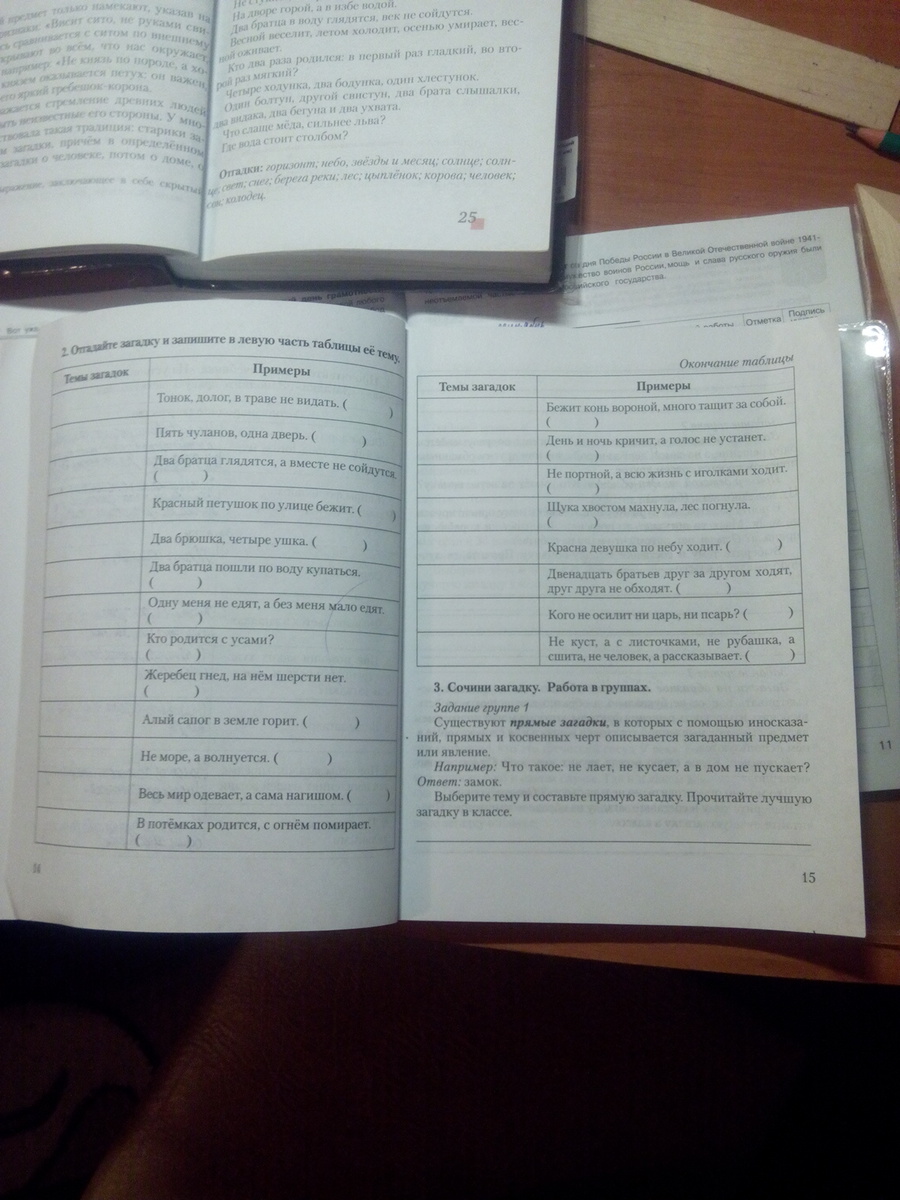 й предмет только намекают, указав на
изнаки: «Висит сито, не руками сви-
сь сравнивается с ситом по внешнему
крывают во всём, что нас окружает,
например: «Не князь по породе, а хо-
князем оказывается петух: он важен,
его яркий гребешок-корона.
ажается стремление древних людей
ыть неизвестные его стороны. У мно-
ствовала такая традиция: старики за-
и загадки, причём в определённом
загадки о человеке, потом о доме, о
ыражение, заключающее в себе скрытый
На дворе горой, а в избе водой.
Два братца в воду глядятся, век не сойдутся.
Весной веселит, летом холодит, осенью умирает, вес-
ной оживает.
Кто два раза родился: в первый раз гладкий, во вто-
рой раз мягкий?
Четыре ходунка, два бодунка, один хлестунок.
Один болтун, другой свистун, два брата слышалки,
два видака, два бегуна и два ухвата.
Что слаще мёда, сильнее льва?
Где вода стоит столбом?
Отгадки: горизонт; небо, звёзды и месяц; солнце; солн-
це, свет; снег; берега реки; лес; цыплёнок; корова; человек;
сон; колодец.
25
дня Победы России в Великой Отечественной войне 1941-
жество воинов России, мощь и слава русского оружия были
неотъемлемой
сийского государства.
Отметка
Подпись
Вот уже
2. Отгадайте загадку и запишите в левую часть таблицы её тему.
Темы загадок
Примеры
Тонок, долог, в траве не видать. ( )
Пять чуланов, одна дверь. ( )
Два братца глядятся, а вместе не сойдутся.
( )
Красный петушок по улице бежит. ( )
Два брюшка, четыре ушка. ( )
Два братца пошли по воду купаться.
( )
Одну меня не едят, а без меня мало едят.
( )
Кто родится с усами?
( )
Жеребец гнед, на нём шерсти нет.
( )
Алый сапог в земле горит. ( )
Не море, а волнуется. ( )
Весь мир одевает, а сама нагишом. ( )
В потёмках родится, с огнём помирает.
( )
14
Окончание таблицы
Темы загадок
Примеры
Бежит конь вороной, много тащит за собой.
( )
День и ночь кричит, а голос не устанет.
( )
Не портной, а всю жизнь с иголками ходит.
( )
Щука хвостом махнула, лес погнула.
( )
Красна девушка по небу ходит. ( )
Двенадцать братьев друг за другом ходят,
друг друга не обходят. ( )
Кого не осилит ни царь, ни псарь? ( )
Не куст, а с листочками, не рубашка, а
сшита, не человек, а рассказывает. ( )
3. Сочини загадку. Работа в группах.
Задание группе 1
Существуют прямые загадки, в которых с помощью иносказа-
ний, прямых и косвенных черт описывается загаданный предмет
или явление.
Например: Что такое: не лает, не кусает, а в дом не пускает?
Ответ: замок.
Выберите тему и составьте прямую загадку. Прочитайте лучшую
загадку в классе.
15
11